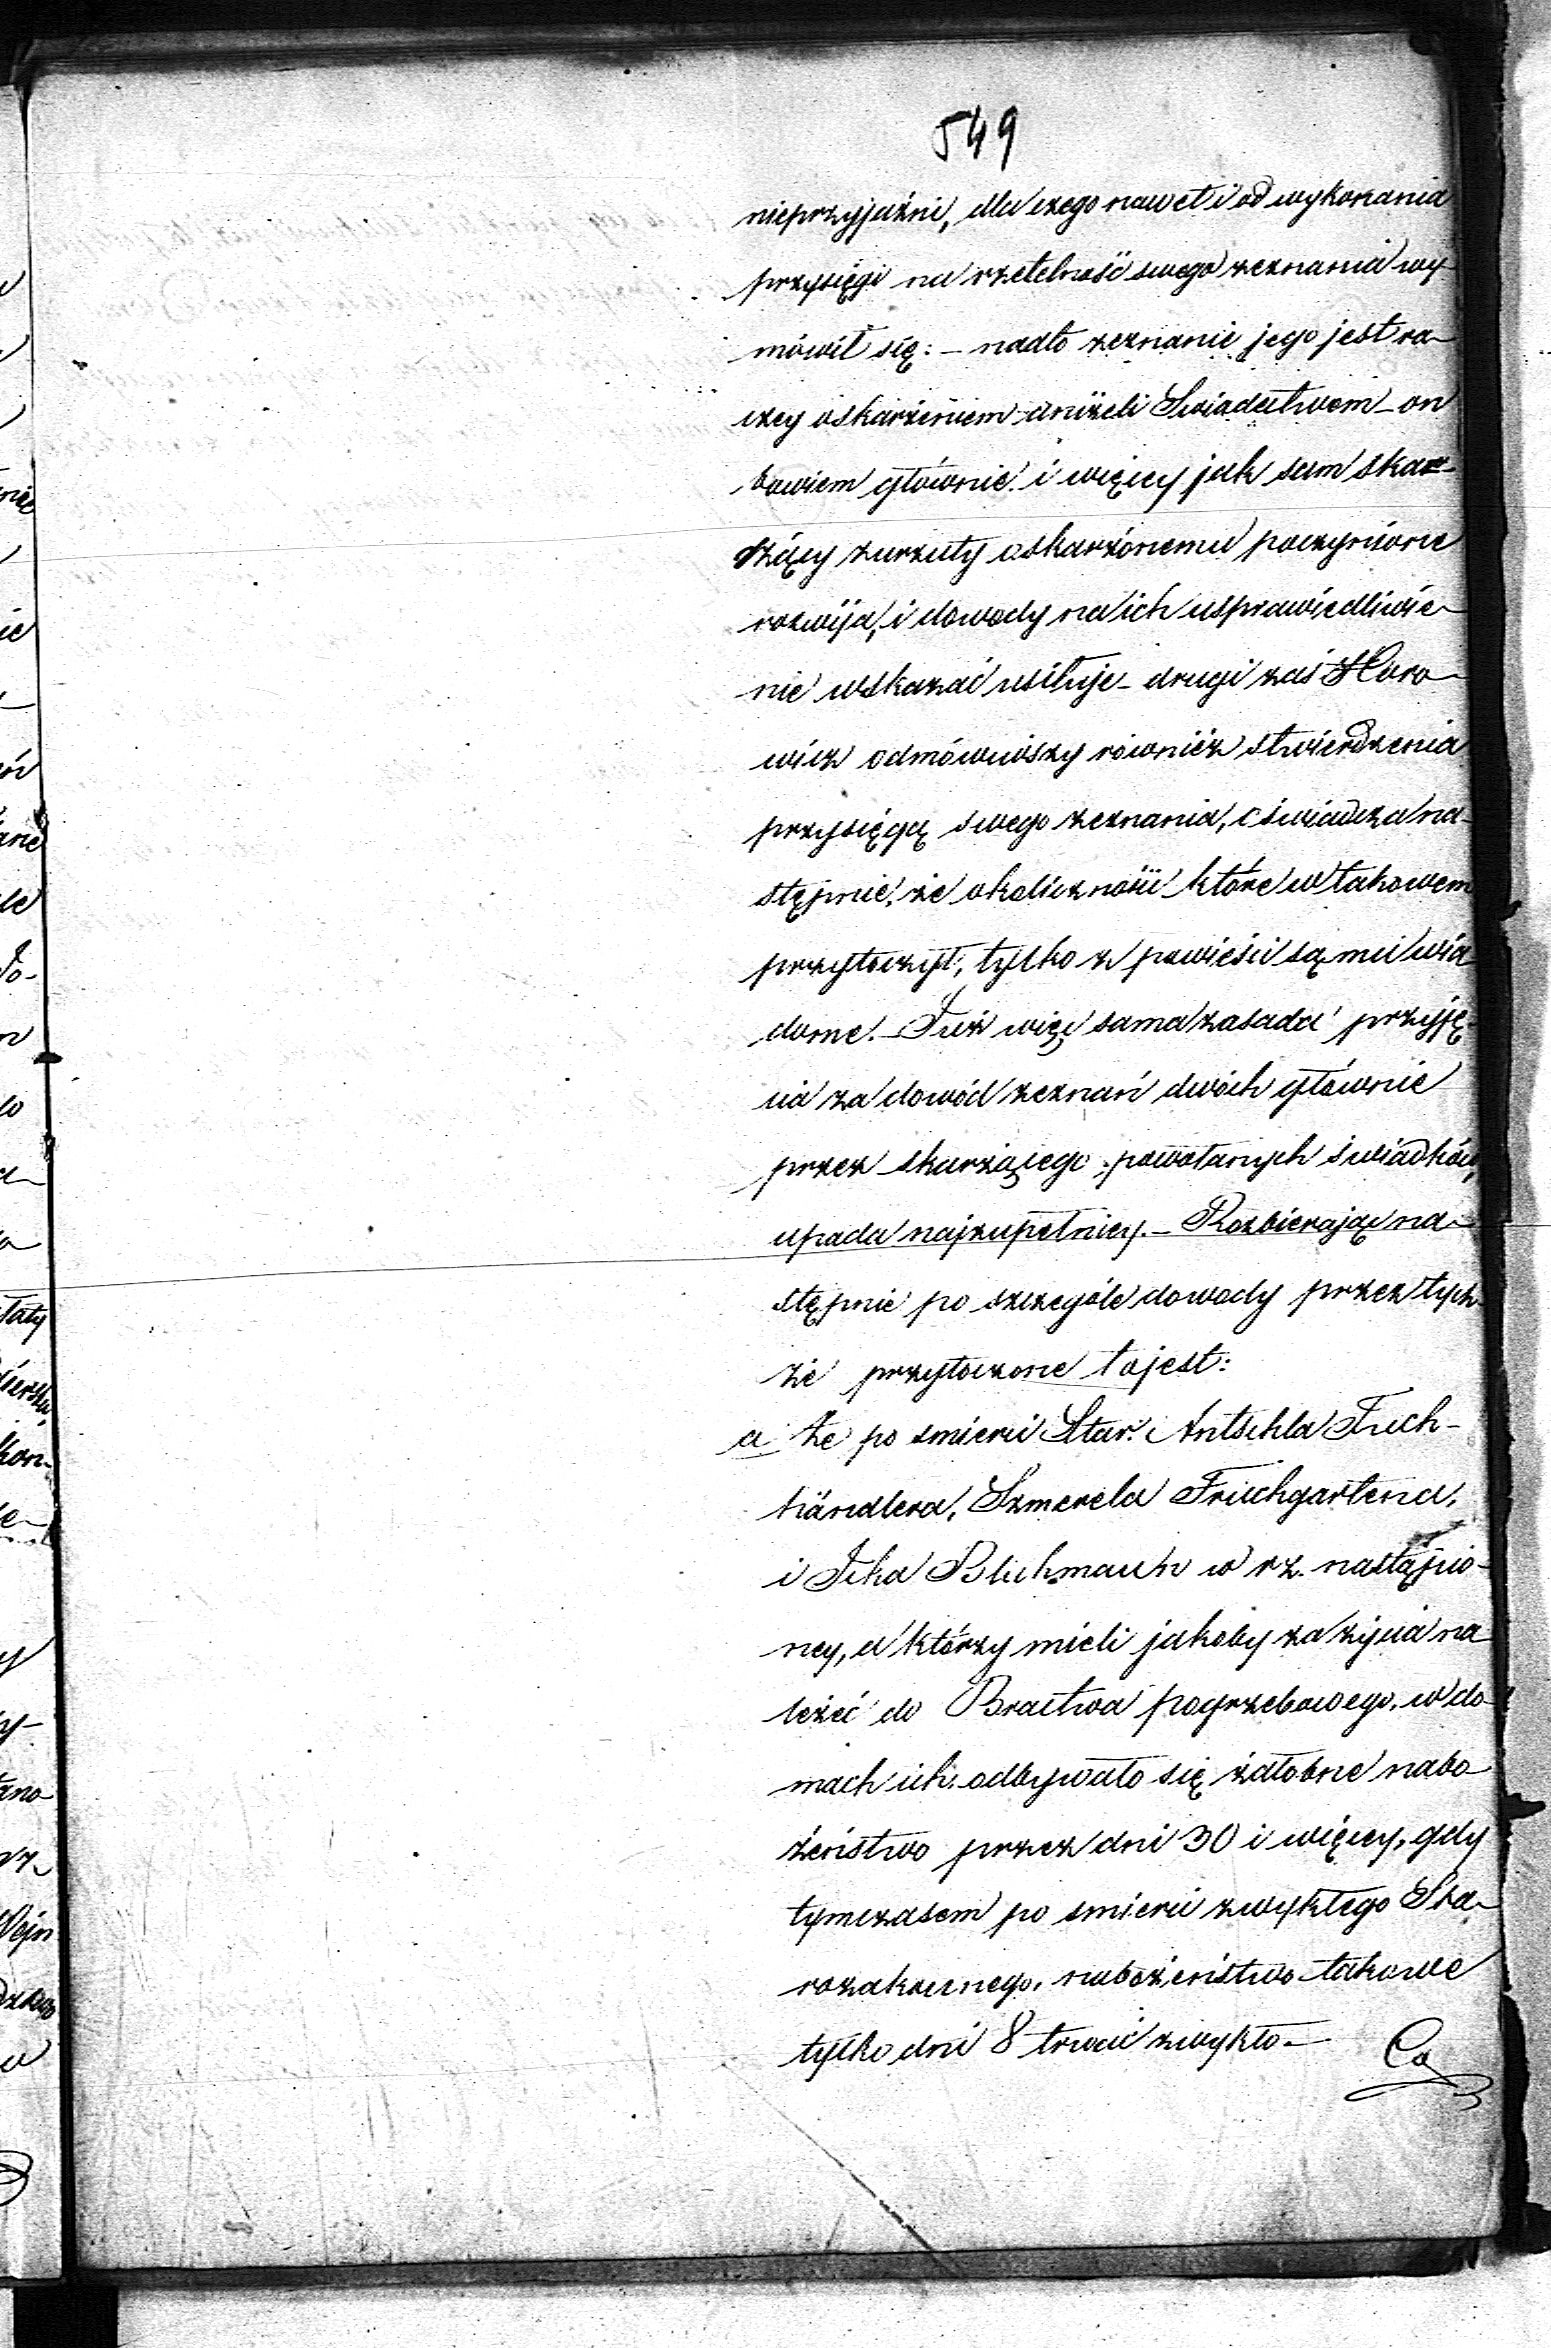 549
nieprzyjaźni, dla czego nawet i od wykonania
przysięgi na rzetelność swego zeznania wy-
mówił się: – nadto zeznanie jego jest ra-
czey oskarżeniem aniżeli Świadectwem – on
bowiem głównie i więcey jak sam skar-
żący zarzuty oskarżonemu poczynione
rozwija, i dowody na ich usprawiedliwie-
nie wskazać usiłuje – drugi zaś Horo-
wicz odmówiwszy również stwierdzenia
przysięgą swego zeznania, oświadcza na-
stępnie, że okoliczności które w takowem
przytoczył, tylko z powieści są mu wia-
dome. – Już więc sama zasada przyję-
cia za dowód zeznań dwóch głównie
przez skarżącego powołanych świadków,
upada najzupełniey. – Rozbierając na-
stępnie po szczególe dowody przez tych-
że przytoczone to jest:
a że po smierci Star. Antschla Tuch-
händlera, Szmerela Fruchgartena,
i Icka w rz. nastąpio-
ney, a którzy mieli jakoby za życia na-
leżeć do Bractwa pogrzebowego, w do-
mach ich odbywało się żałobne nabo-
żeństwo przez dni 30 i więcey, gdy
tymczasem po smierci zwykłego Sta-
rozakonnego, nabożeństwo takowe
tylko dni 8 trwać zwykło –
Co